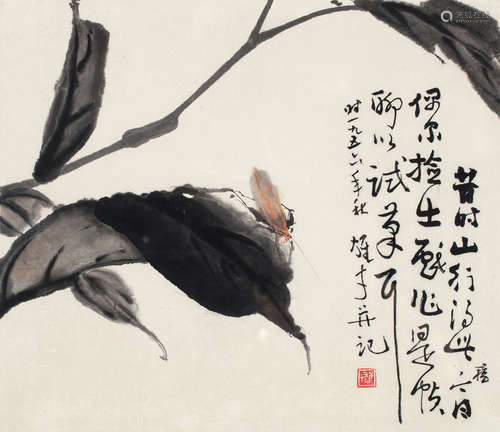 昔时山行得此稿今日
偶尔捡出戏作是帧
聊以试笔耳
时一九五六年秋 雄才并记